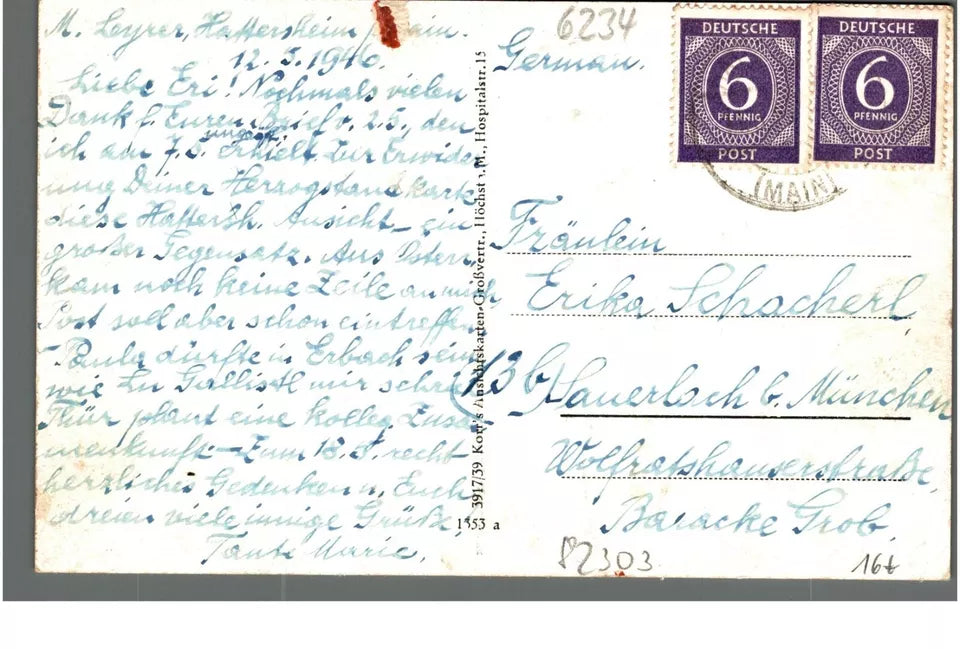 M. Leyrer, Hattersheim Main.
12.5.1946.
Liebe Eri! Nochmals vielen
Dank f. Euren Brief v. 2.5., den
ich am 7.5. erhielt. Zur Erwider-
ung Deiner Herzogstandkarte
diese Hattersh. Ansicht – ein
großer Gegensatz. Aus Österr.
kam noch keine Zeile an mich
Post soll aber schon eintreffen
Paula dürfte in Erbach sein,
wie Gallistl mir schrieb
Thür plant eine Kolleg. Zusam-
menkunft – Zum 18.5. recht
herzliches Gedenken u. Euch
dreien viele innige Grüße,
Tante Marie.
3917/39 Korr's Ansichtskarten-Großvertr., Höchst a.M., Hospitalstr. 15
1353 a
6234
German.
DEUTSCHE
6
PFENNIG
POST
DEUTSCHE
6
PFENNIG
POST
(MAIN)
Fräulein
Erika Schacherl
(13b) Bauerlsch b. München
Wolfratshauserstraße,
Baracke Grob.
82303
16t